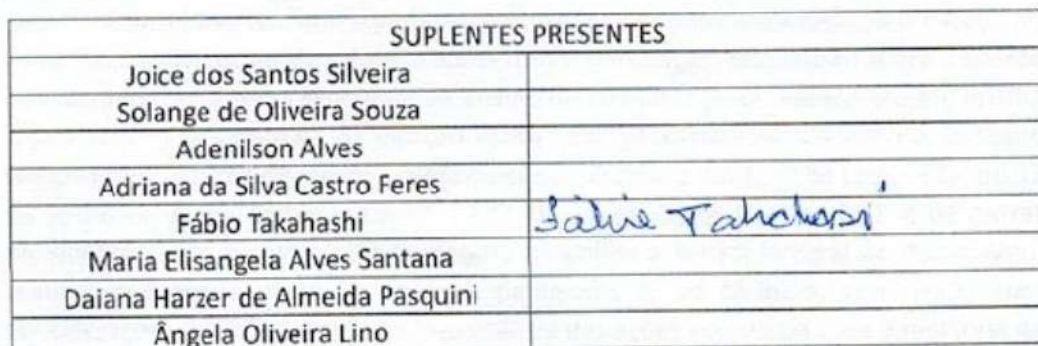 SUPLENTES PRESENTES
Joice dos Santos Silveira
Solange de Oliveira Souza
Adenilson Alves
Adriana da Silva Castro Feres
Fábio Takahashi Fábio Takahasi
Maria Elisangela Alves Santana
Daiana Harzer de Almeida Pasquini
Ângela Oliveira Lino